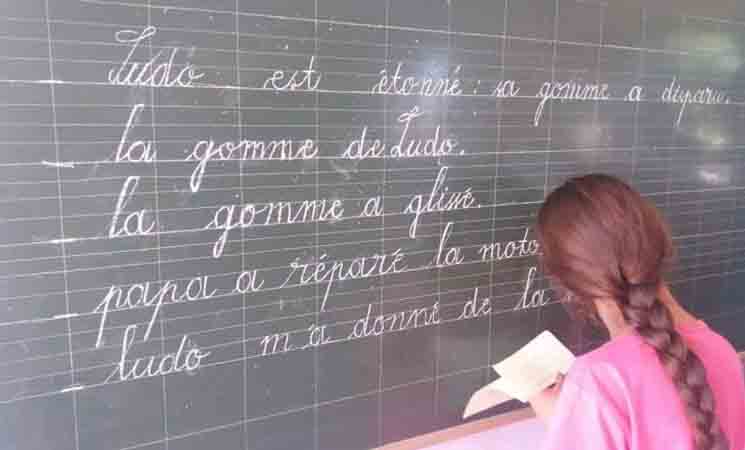 Ludo est étonné : sa gomme a disparu.
_ la gomme de Ludo.
_ la gomme a glissé.
_ papa a réparé la moto
_ ludo m'a donné de la